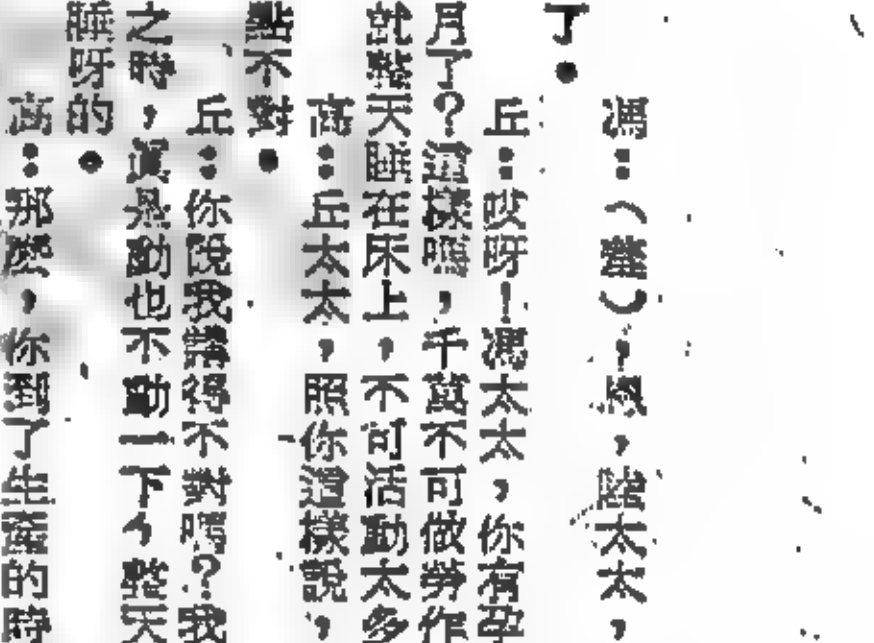 馮：（驚），嗯，陸太太，
了。
丘：哎呀！馮太太，你有孕
月了？這樣嗎，千萬不可做勞作
就整天睡在床上，不可活動太多
高：丘太太，照你這樣說，
點不對。
丘：你說我講得不對嗎？我
之時，眞是動也不動一下，整天
睡呀的。
高：那麽，你到了生產的時